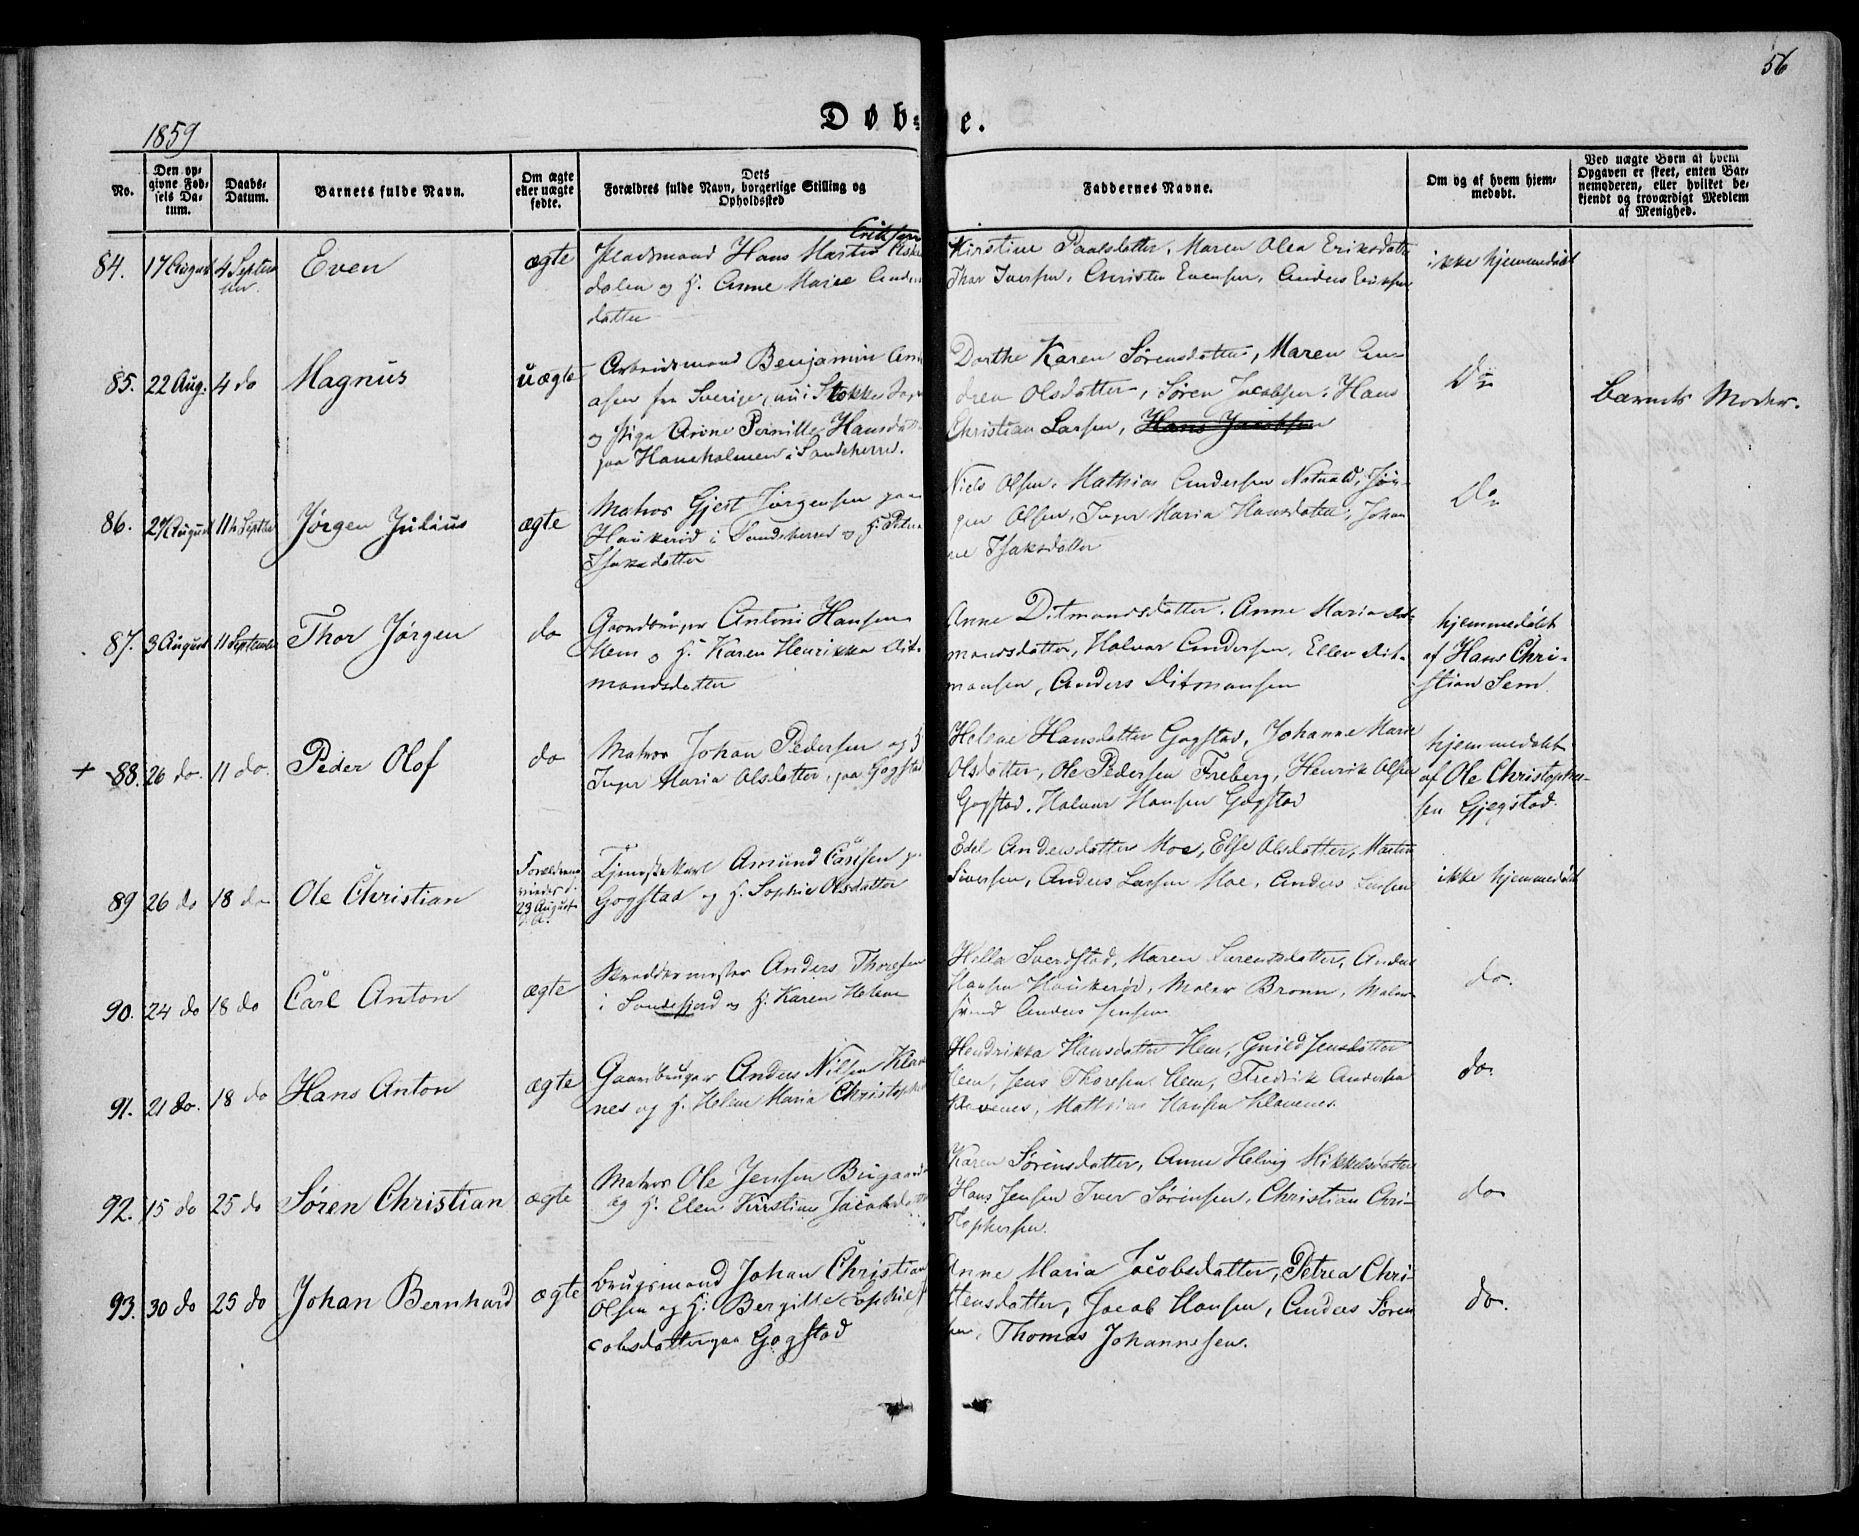 56
1859
Døb-
e.
No.
Den op-
givne Fød-
sels Da-
tum.
Daabs-
Datum.
Barnets fulde Navn.
Om ægte
eller uægte
fødte.
Dets
Forældres fulde Navn, borgerlige Stilling og
Opholdssted
Faddernes Navne.
Om og af hvem hjem-
medøbt.
Ved uægte Børn af hvem
Opgaven er skeet, enten Bar-
nemoderen, eller hvilket be-
kjendt og troværdigt Medlem
af Menighed.
84. 17 August 4 Septem
ber. Even ægte
Eriksen
Pladsmand Hans Martin
dalen og H. Anne Marie Anders
datter
Kirstine Paalsdatter, Maren Olea Eriksdatt
Thor Iversen, Christen Evensen, Anders Eriksen
ikke hjemmedøbt
85. 22 Aug. 4 do Magnus uægte
Arbeidsmand Benjamin An
asen fra Sverige, nu i Stokke Sogn
og Pige Anne Pernille Hansdatt
paa Haneholmen i Sandeherred.
Dorthe Karen Sørensdatter, Maren An
drea Olsdatter, Søren Jacobsen, Hans
Christian Larsen, Hans Jacobsen
Do
Barnets Moder.
86. 24 August 11te Septbr Jørgen Julius ægte
Matros Gjert Jørgensen paa
Haukerød i Sandeherred og H. Peter
Isaksdatter
Niels Olsen, Mathias Andersen Natvald, Jør-
gen Olsen, Inger Maria Hansdatter, Johan
ne Isaksdatter
Do
87. 3 August 11 September Thor Jørgen do
Gaardbruger Antoni Hansen
Hem og H. Karen Henrikka Dit-
mandsdatter
Anne Ditmandsdatter, Anne Maria Dit-
mandsdatter, Halvor Andersen, Ellev Dit-
mansen, Anders Ditmansen
hjemmedøbt
af Hans Chri-
stian Sem.
+ 88. 26 do. 11 do. Peder Olof do
Matros Johan Pedersen og H
Inger Maria Olsdatter, paa Gogstad
Helene Hansdatter Gogstad, Johanne Marie
Olsdatter, Ole Pedersen Freberg, Henrik Olsen
Gogstad, Halvor Hansen Gogstad
hjemmedøbt
af Ole Christopher-
sen Gjegstad.
89 26 do 18 do Ole Christian
Forældrene
viede d.
23 August
d. A.
Tjenestekarl Amund Carlsen p
Gogstad og H. Sophie Olsdatter
Edel Andersdatter Moe, Else Olsdatter, Martin
Siversen, Anders Larsen Moe, Anders Larsen
ikke hjemmedøbt
90. 24 do 18 do Carl Anton ægte
Skreddermester Anders Thoresen
i Sandefjord og H. Karen Helene
Hella Sverdstad, Maren Lorensdatter, Anders
Hansen Haukerød, Maler Bronn, Maler-
svend Anders Jensen
do.
91. 21 do. 18 do Hans Anton ægte
Gaardbruger Anders Nilsen Klave
nes og H. Helene Maria Christophe
Hendrikka Hansdatter Hem, Gunild Jensdatter
Hem, Jens Thoresen Hem, Fredrik Andersen
Klavenes, Mathias Hansen Klavenes.
do.
92. 15 do 25 do Søren Christian ægte
Matros Ole Jensen Bugaard
og H. Elen Kirstine Jacobsdatt
Karen Sørensdatter, Anne Helvig Mikkelsdatter
Hans Jensen, Iver Sørensen, Christian Chri-
stophersen.
do
93. 30 do 25 do Johan Bernhard ægte
Brugsmand Johan Christian
Olsen og H. Bergitte Sophie J
cobsdatter paa Gogstad
Anne Maria Jacobsdatter, Petrea Chri-
stensdatter, Jacob Hansen, Anders Søren
sen, Thomas Johannesen.
do.